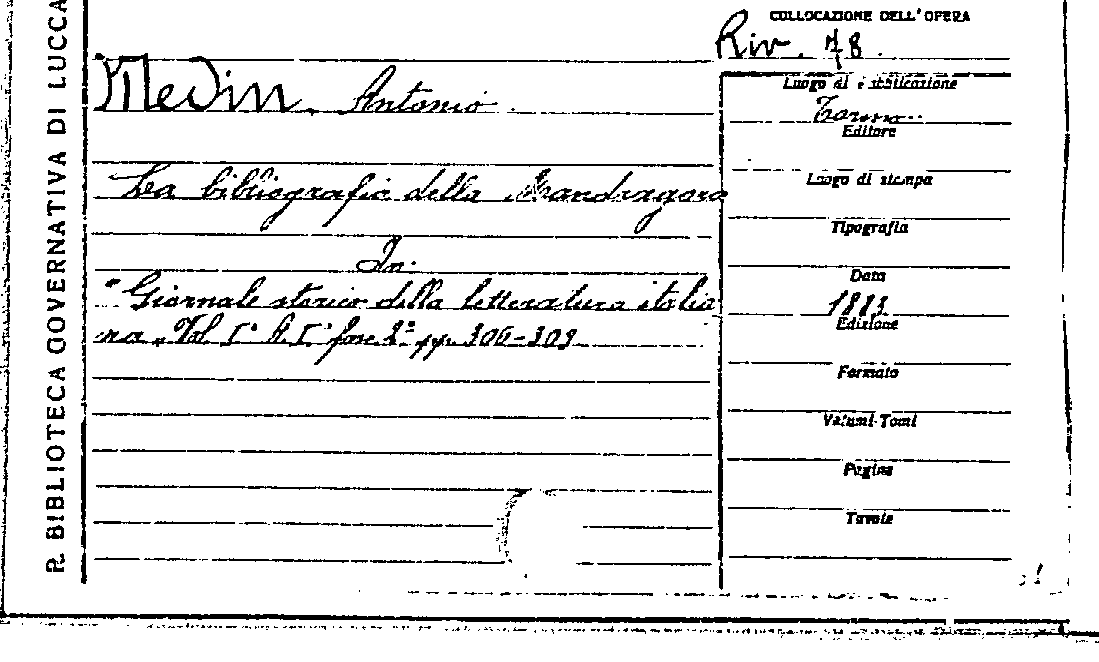 R. BIBLIOTECA GOVERNATIVA DI LUCCA
COLLOCAZIONE DELL'OPERA
Riv. 78.
Medin. Antonio.
La bibliografia della Mandragora
In:
"Giornale storico della letteratura italia
na" Vol. I° A. I° fasc. 2° pp. 306-309
Luogo di pubblicazione
Torino
Editore
Luogo di stampa
Tipografia
Data
1883
Edizione
Formato
Volumi-Tomi
Pagine
Tavole